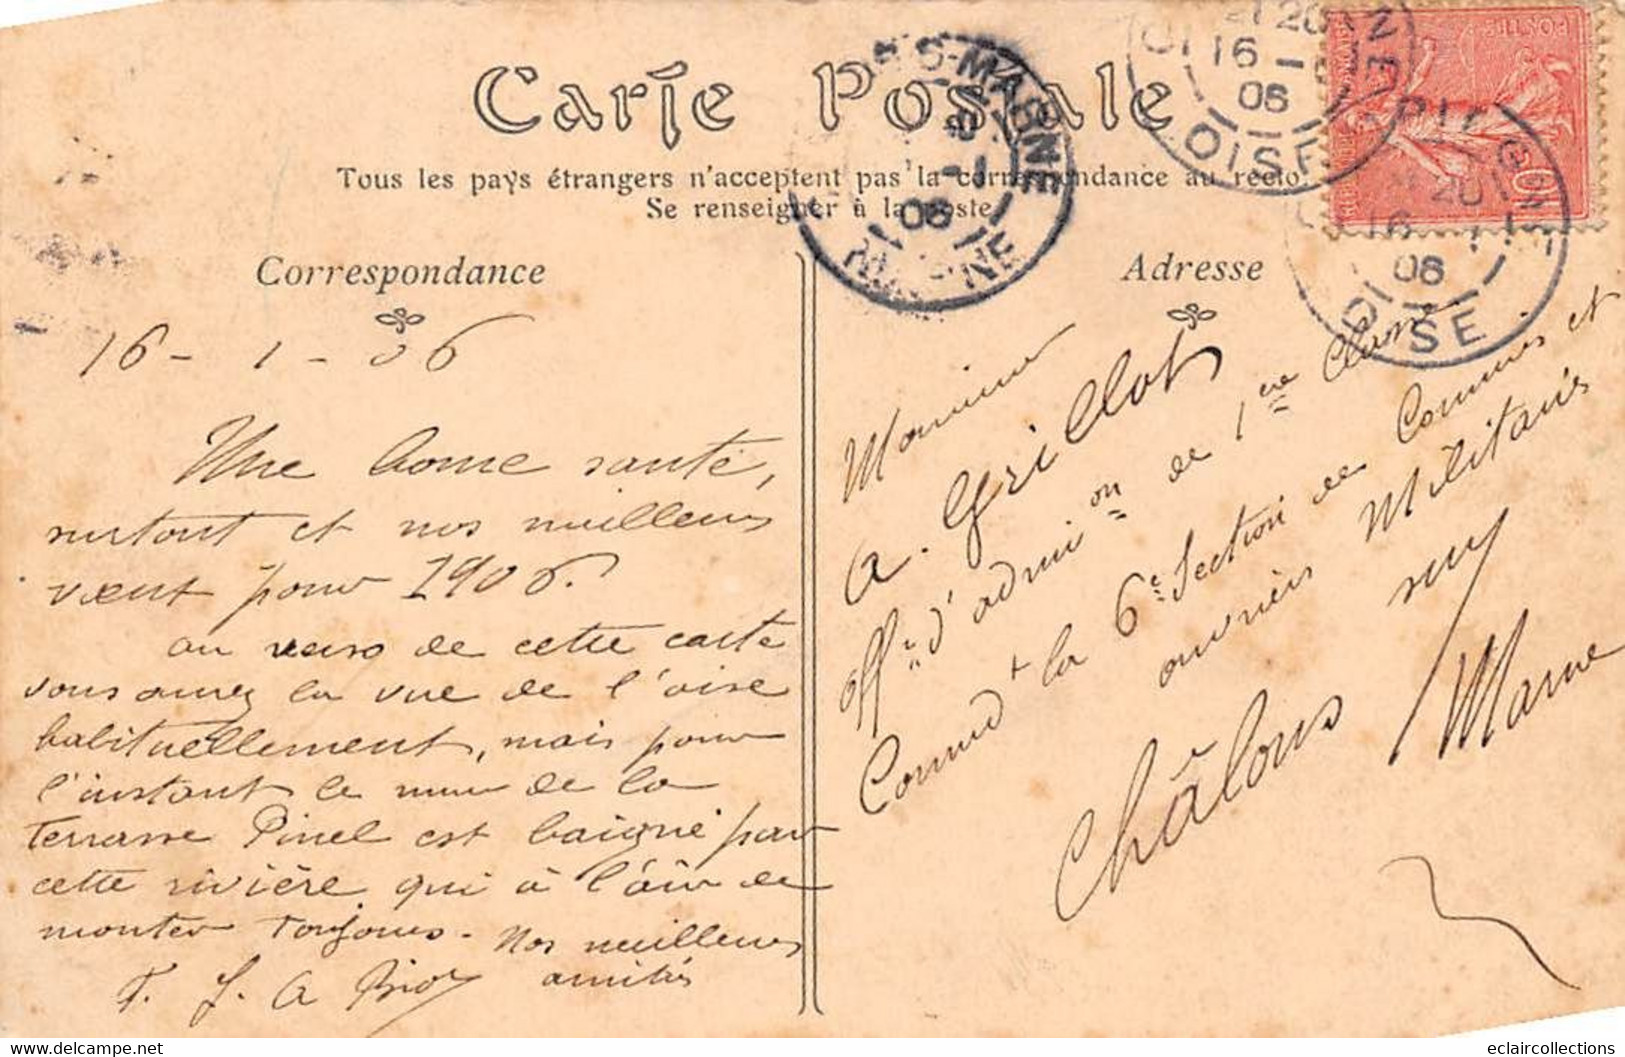 Carte Postale
Tous les pays étrangers n'acceptent pas la correspondance au recto
Se renseigner à la poste
Correspondance
Adresse
16 - 1 - 06
Une bonne santé,
surtout et nos meilleurs
vœux pour 1906.
au verso de cette carte
vous aurez la vue de l'oise
habituellement, mais pour
l'instant le mur de la
terrasse Pinel est baigné par
cette rivière qui a l'air de
monter toujours. Nos meilleures
amitiés
F. J. A
Monsieur
A. Grillot
Off.r d'admion de 1ere Classe
Commdt la 6e Section de Commis et
ouvriers Militaires
Châlons sur Marne
POSTES
10
20
16 - 1
06
OISE
20
16 - 1
06
OISE
S-MARNE
06
MARNE
eclaircollections
https://www.delcampe.net
eclaircollections